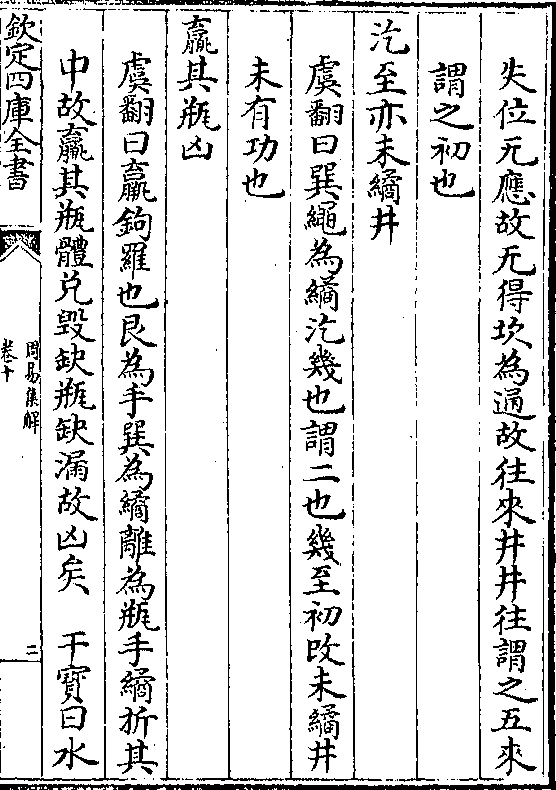 失位无應故无得坎為通故往來井井往謂之五來
謂之初也
汔至亦未繘井
虞翻曰巽繩為繘汔幾也謂二也幾至初改未繘井
未有功也
羸其瓶凶
虞翻曰羸鉤羅也艮為手巽為繘離為瓶手繘折其
中故羸其瓶體兌毀缺瓶缺漏故凶矣　干寶曰水
欽定四庫全書
周易集解
卷十
二